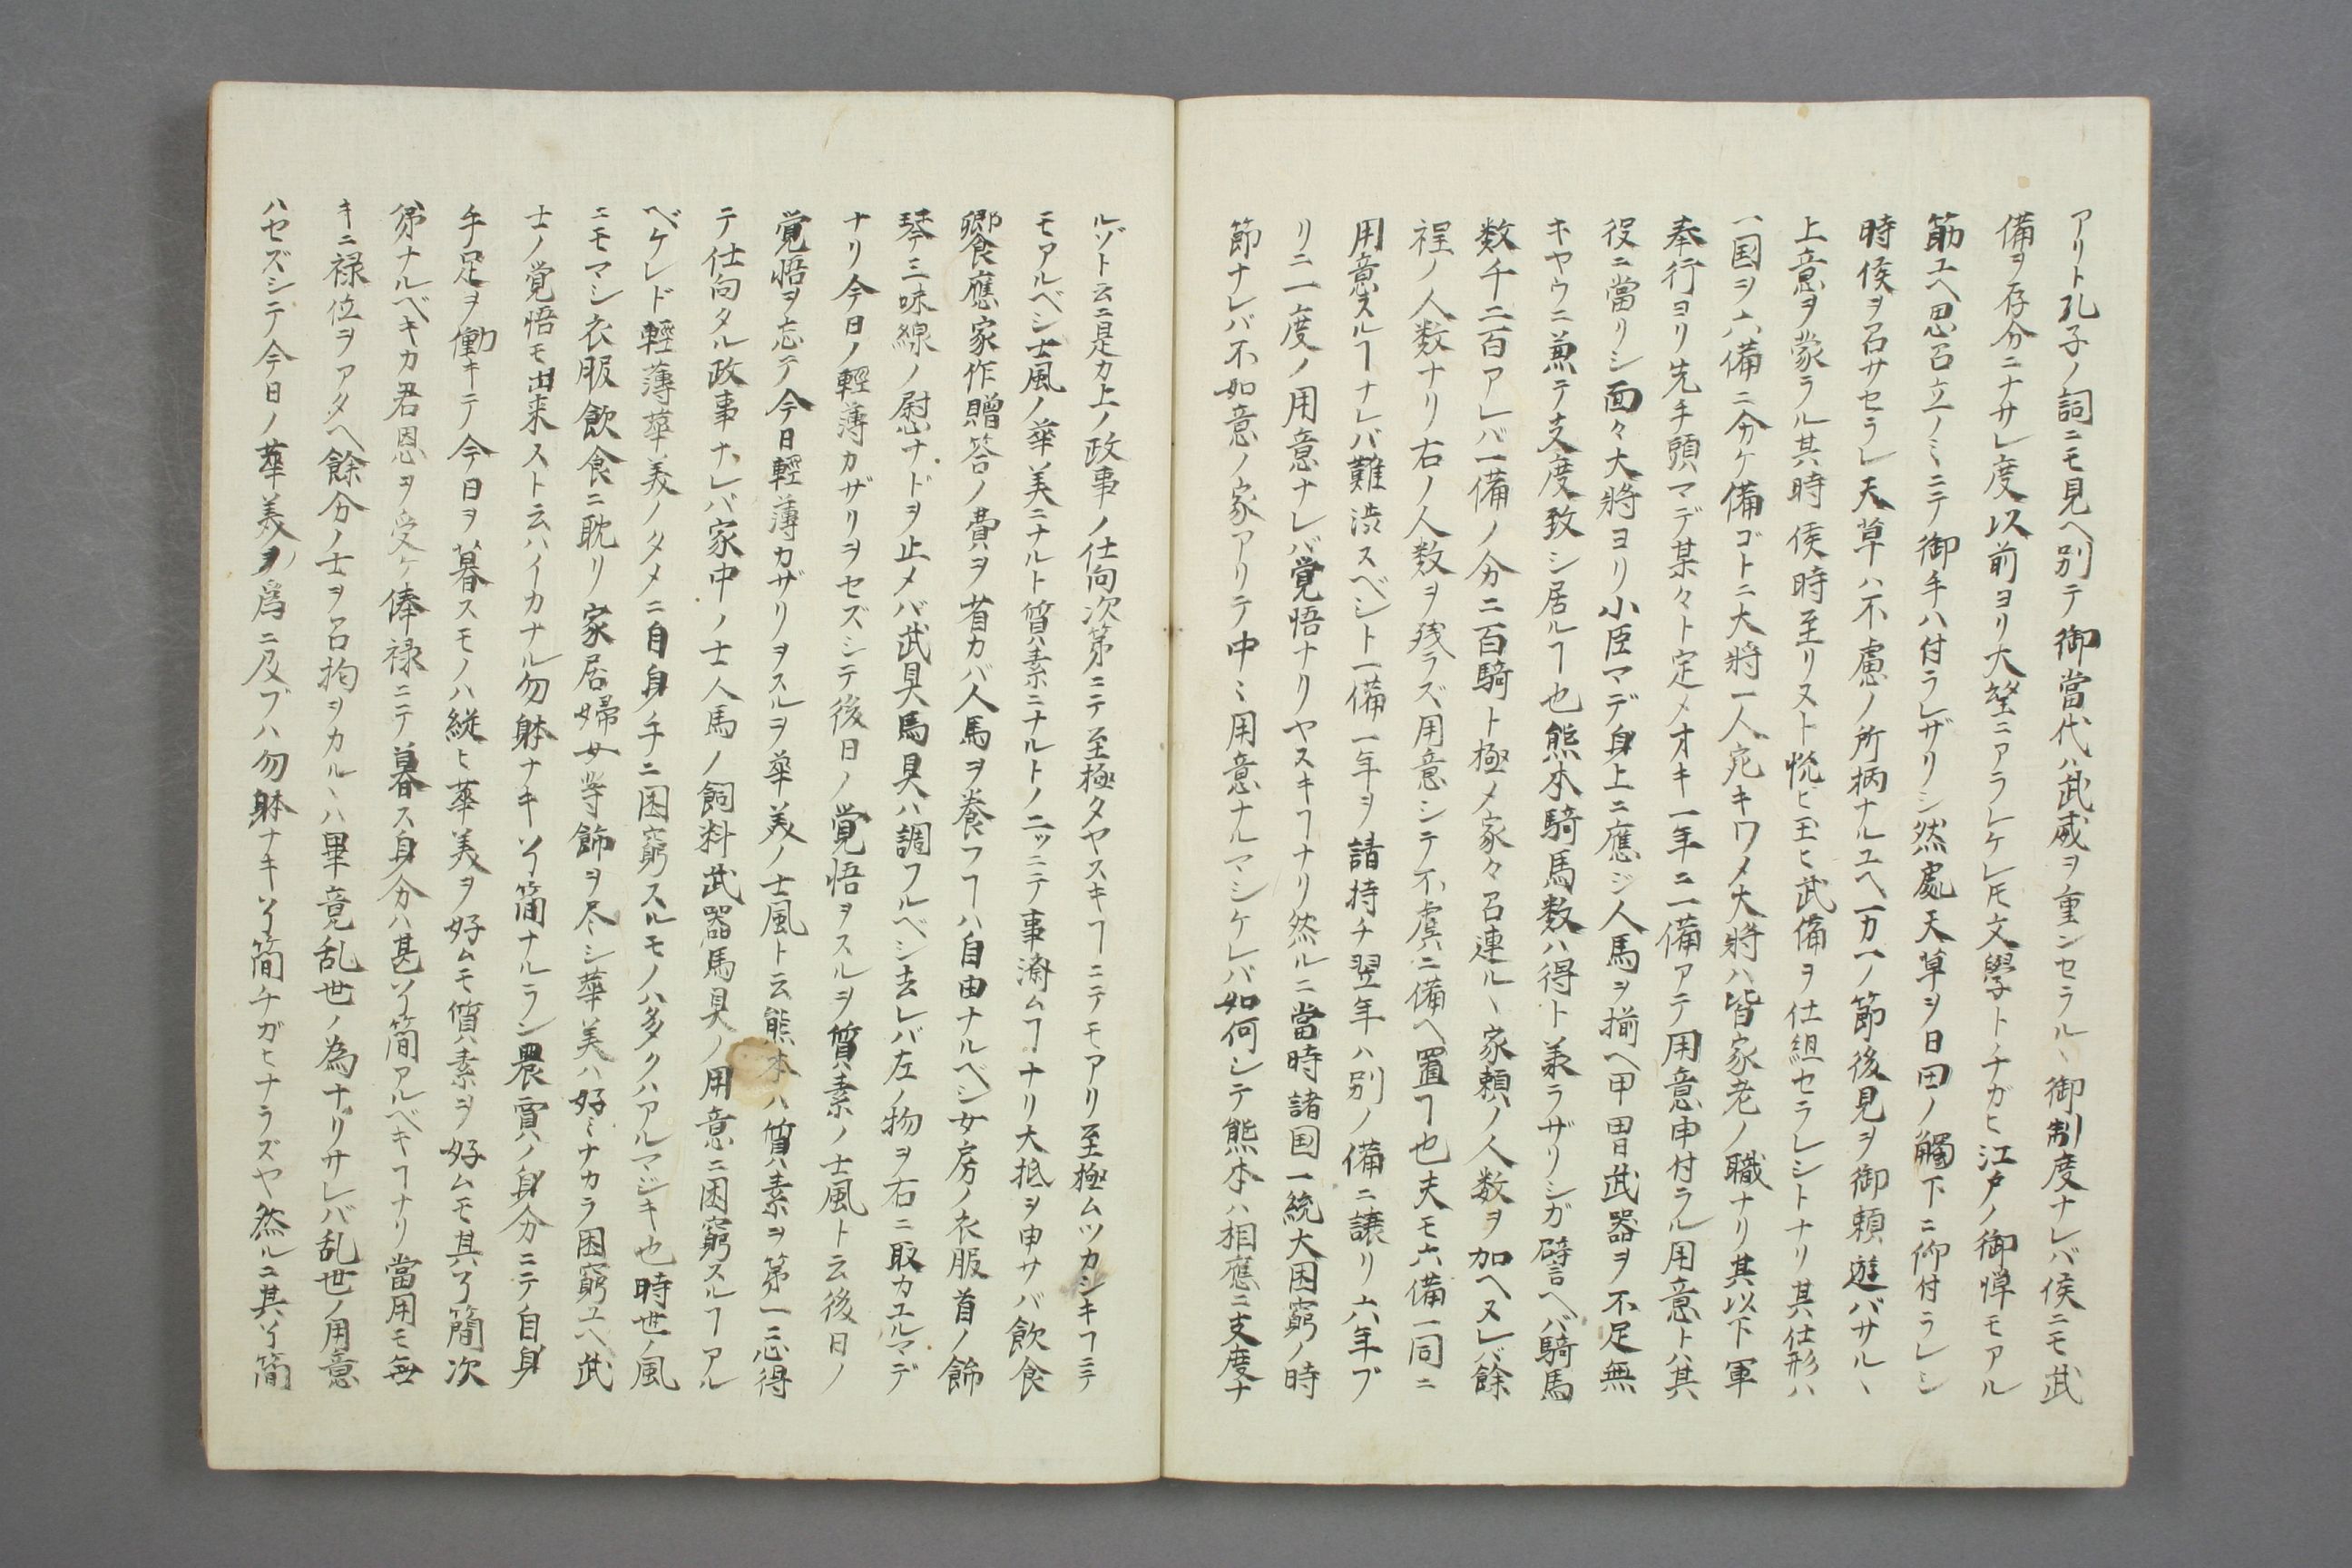 アリト孔子ノ詞ニモ見ヘ別テ御當代ハ武威ヲ重ンセラルヽ御制度ナレバ侯ニモ武
備ヲ存分ニナサレ度以前ヨリ大望ニアラレケレ𪜈文學トチガヒ江戸ノ御憚モアル
筋ユヘ思召立ノミニテ御手ハ付ラレザリシ然處天草ヲ日田ノ觸下ニ仰付ラレシ
時侯ヲ召サセラレ天草ハ不慮ノ所柄ナルユヘ万一ノ節後見ヲ御頼遊バサルヽ
上意ヲ蒙ラル其時侯時至リヌト悦ヒ玉ヒ武備ヲ仕組セラレシトナリ其仕形ハ
一国ヲ六備ニ分ケ備ゴトニ大將一人宛キワメ大將ハ皆家老ノ職ナリ其以下軍
奉行ヨリ先手頭マデ某々ト定メオキ一年ニ一備アテ用意申付ラル用意トハ其
役ニ當リシ面々大將ヨリ小臣マデ身上ニ應ジ人馬ヲ揃ヘ甲冑武器ヲ不足無
キヤウニ兼テ支度致シ居ルヿ也熊本騎馬数ハ得ト承ラザリシガ譬ヘバ騎馬
数千二百アレバ一備ノ分二百騎ト極メ家々召連ルヽ家頼ノ人数ヲ加ヘヌレバ餘
程ノ人数ナリ右ノ人数ヲ残ラズ用意シテ不虞ニ備ヘ置ヿ也夫モ六備一同ニ
用意スルヿナレバ難渋スベシト一備一年ヲ請持チ翌年ハ別ノ備ニ譲リ六年ブ
リニ一度ノ用意ナレバ覚悟ナリヤスキヿナリ然ルニ當時諸国一統大困窮ノ時
節ナレバ不如意ノ家アリテ中ミ用意ナルマシケレバ如何シテ熊本ハ相應ニ支度ナ
ルゾト云ニ是カ上ノ政事ノ仕向次第ニテ至極タヤスキヿニテモアリ至極ムツカシキヿニテ
モアルベシ士風ノ華美ニナルト質素ニナルトノ二ッニテ事濟ムヿナリ大抵ヲ申サバ飲食
饗應家作贈答ノ費ヲ省カバ人馬ヲ養フヿハ自由ナルベシ女房ノ衣服首ノ餝
琴三味線ノ慰ナドヲ止メバ武具馬具ハ調フルベシ去レバ左ノ物ヲ右ニ取カユルマデ
ナリ今日ノ輕薄カザリヲセズシテ後日ノ覚悟ヲスルヲ質素ノ士風ト云後日ノ
覚悟ヲ忘テ今日輕薄カザリヲスルヲ華美ノ士風ト云熊本ハ質素ヲ第一ニ心得
テ仕向タル政事ナレバ家中ノ士人馬ノ飼料武器馬具ノ用意ニ困窮スルヿアル
ベケレド輕薄華美ノタメニ自身手ニ困窮スルモノハ多クハアルマジキ也時世ノ風
ニモマシ衣服飲食ニ耽リ家居婦女等餝ヲ尽シ華美ハ好ミナカラ困窮ユヘ武
士ノ覚悟モ出来ヌト云ハイカナル勿躰ナキ了簡ナルラン農賈ノ身分ニテ自身
手足ヲ働キテ今日ヲ暮スモノハ縦ヒ華美ヲ好ムモ質素ヲ好ムモ其了簡次
第ナルベキカ君恩ヲ受ケ俸禄ニテ暮ス身分ハ甚了簡アルベキヿナリ當用モ無
キニ禄位ヲアタヘ餘分ノ士ヲ召拘ヲカルヽハ畢竟乱世ノ為ナリサレバ乱世ノ用意
ハセズシテ今日ノ華美ヲノ爲ニ及ブハ勿躰ナキ了簡チガヒナラズヤ然ルニ其了簡